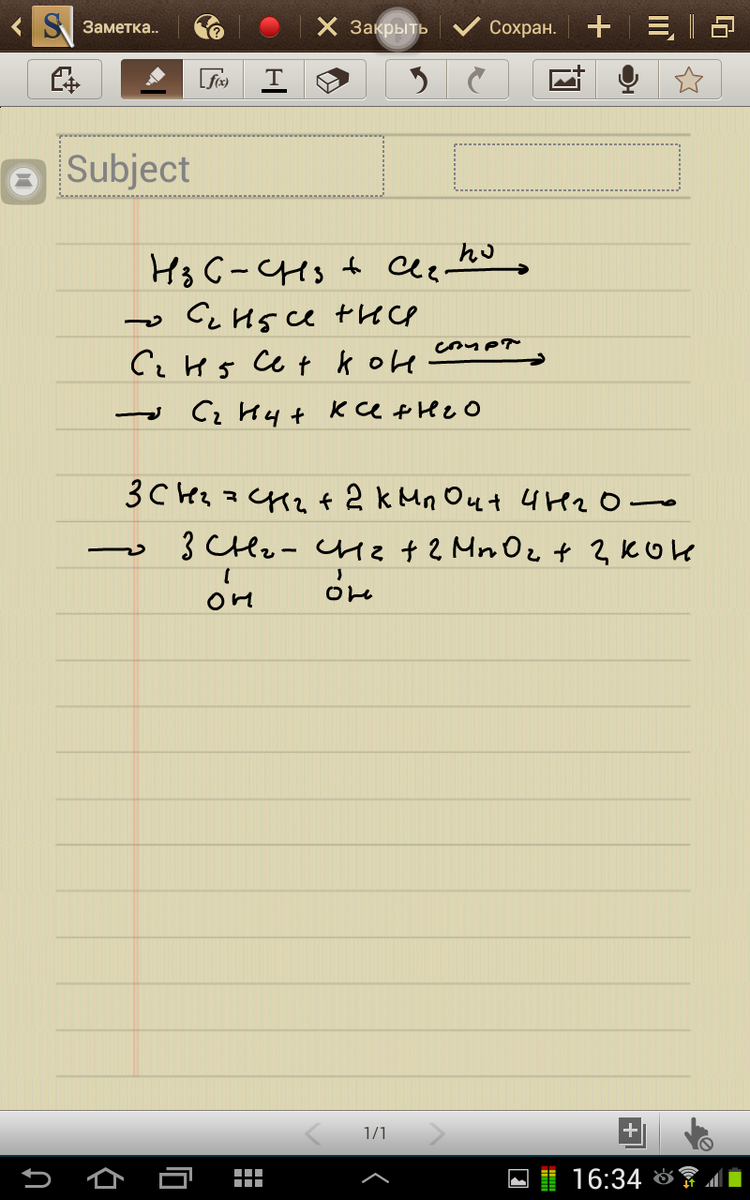 Заметка.. Закрыть Сохран.
f(x) T
Subject
H3C-CH3 + Cl2 hν→
→ C2H5Cl + HCl
C2H5Cl + KOH спирт→
→ C2H4 + KCl + H2O
3CH2=CH2 + 2KMnO4 + 4H2O →
→ 3CH2-CH2 + 2MnO2 + 2KOH
OH OH
1/1
16:34